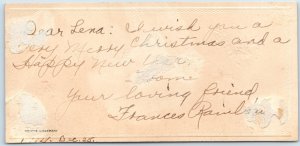 Dear Lena: I wish you a
Very Merry Christmas and a
Happy New Year.
From
Your loving friend
Frances
Dec. 25.